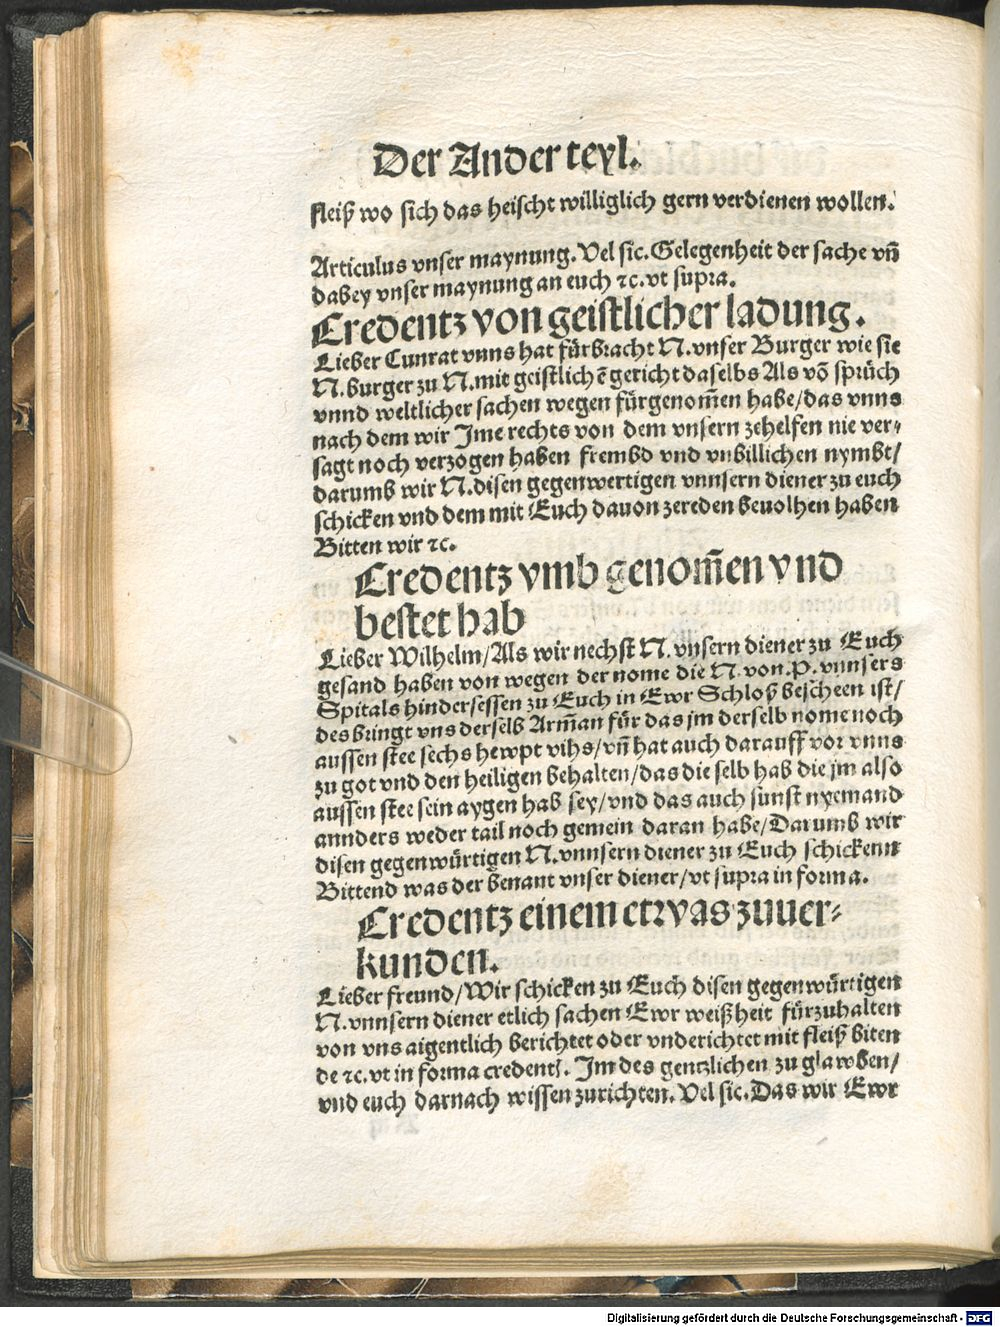 Der Ander teyl.
fleiß wo sich das heischt williglich gern verdienen wollen.
Articulus vnser maynung. Vel sic. Gelegenheit der sache vñ
dabey vnser maynung an euch ꝛc. vt supra.
Credentz von geistlicher ladung.
Lieber Cunrat vnns hat fürbracht N. vnser Burger wie sie
N. burger zu N. mit geistlichē gericht daselbs Als vō sprüch
vnnd weltlicher sachen wegen fürgenom̄en habe/das vnns
nach dem wir Ime rechts von dem vnsern zehelfen nie ver⸗
sagt noch verzogen haben frembd vnd vnbillichen nymbt/
darumb wir N. disen gegenwertigen vnnsern diener zu euch
schicken vnd dem mit Euch dauon zereden beuolhen haben
Bitten wir ꝛc.
Credentz vmb genom̄en vnd
bestet hab
Lieber Wilhelm/Als wir nechst N. vnsern diener zu Euch
gesand haben von wegen der nome die N. von. P. vnnsers
Spitals hindersessen zu Euch in Ewr Schloß bescheen ist/
des bringt vns derselb Arm̄an für das jm derselb nome noch
aussen stee sechs hewpt vihs/vñ hat auch darauff vor vnns
zu got vnd den heiligen behalten/das die selb hab die jm also
aussen stee sein aygen hab sey/vnd das auch sunst nyemand
annders weder tail noch gemein daran habe/Darumb wir
disen gegenwürtigen N. vnnsern diener zu Euch schickenn
Bittend was der benant vnser diener/vt supra in forma.
Credentz einem etzwas zuuer⸗
kunden.
Lieber freund/Wir schicken zu Euch disen gegenwürtigen
N. vnnsern diener etlich sachen Ewr weißheit fürzuhalten
von vns aigentlich berichtet oder vnderichtet mit fleiß biten
de ꝛc. vt in forma credentl. Im des gentzlichen zu glawben/
vnd euch darnach wissen zurichten. Vel sic. Das wir Ewr
Digitalisierung gefördert durch die Deutsche Forschungsgemeinschaft - DFG